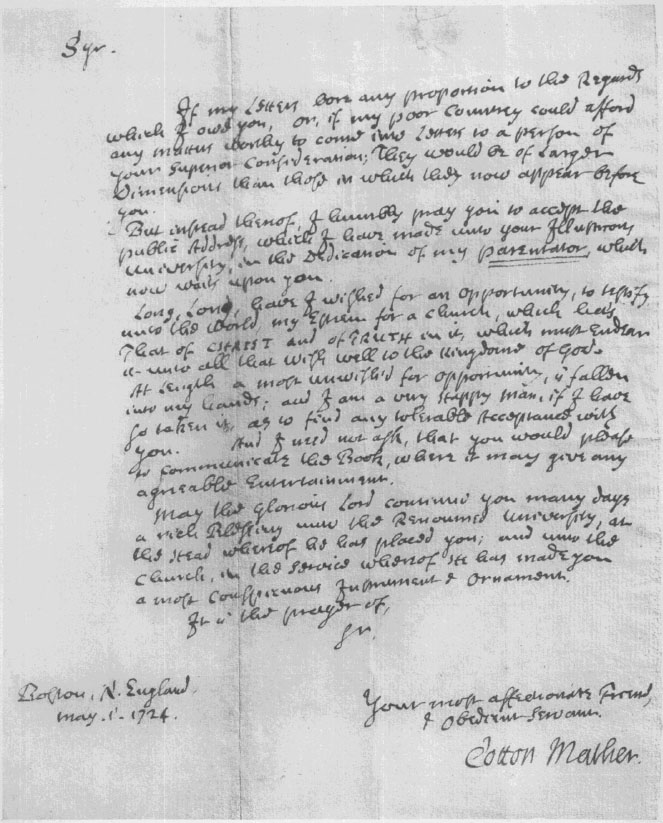 Syr.
If my Letters bore any proportion to the Regards
which I owe you, or, if my poor Countrey could afford
any matters worthy to come into Letters to a person of
your Superior Consideration; They would be of Larger
Dimensions than those in which they now appear before
you.
But instead thereof, I humbly pray you to accept the
publick Address, which I have made unto your Illustrious
University, in the Dedication of my Parentator, which
now waits upon you.
Long, Long, have I wished for an opportunity, to testify
unto the World, my Esteem for a Church, which hath
That of CHRIST and of TRUTH in it, which must Endear
it unto all that wish well to the Kingdome of God.
At Length a most unwish'd for opportunity, is fallen
into my hands; and I am a very Happy man, if I have
so taken it, as to find any tolerable Acceptance with
you. And I need not ask, that you would please
to communicate the Book, where it may give any
agreable Entertainment.
May the Glorious Lord continue you many days
a rich Blessing unto the Renouned University, at
the Head whereof he has placed you; and unto the
Church, in the Service whereof He has made you
a most Conspicuous Instrument & Ornament.
It is the prayer of,
Sr.
Boston, N. England.
may. 1. 1724.
Your most affectionate Friend,
& Obedient Servant.
Cotton Mather.